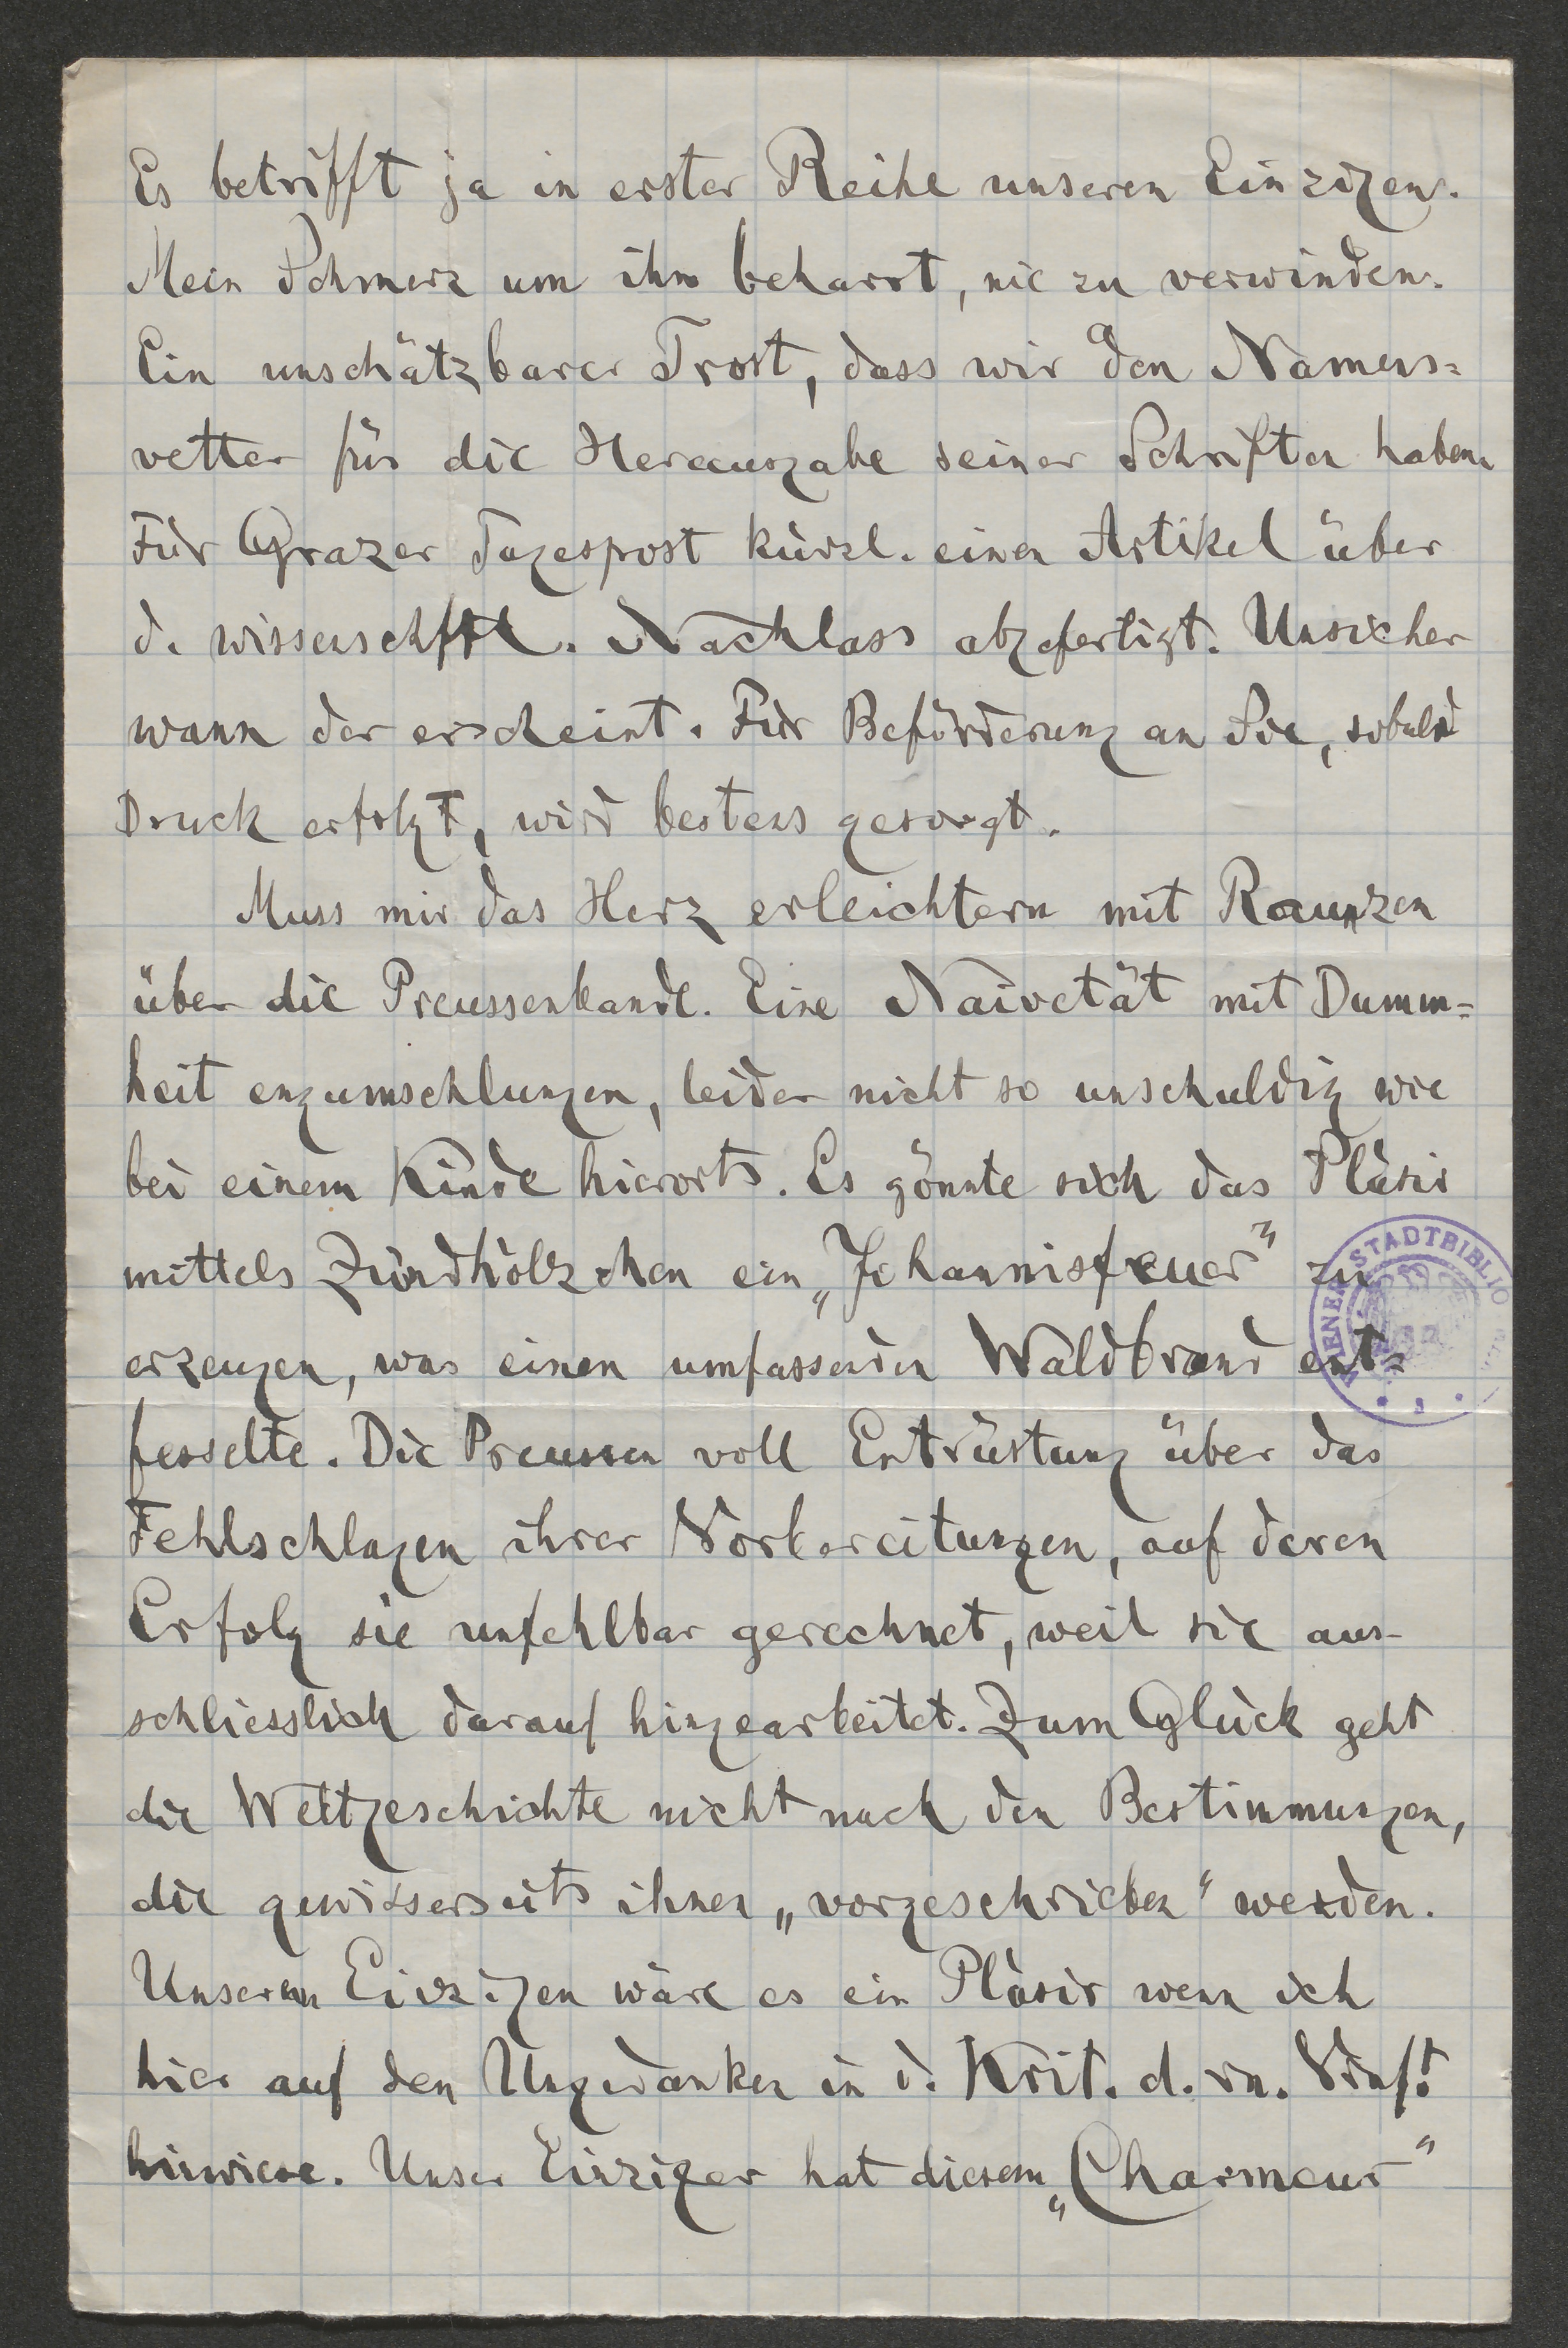 Es betrifft ja in erster Reihe unseren Einzigen.
Mein Schmerz um ihn beharrt, nie zu verwinden.
Ein unschätzbarer Trost, dass wir den Namens=
vetter für die Herausgabe seiner Schriften haben.
Für Grazer Tagespost kürzl. einen Artikel über
d. wissenschftl. Nachlass abgefertigt. Unsicher
wann der erscheint. Für Beförderung an Sie, sobald
Druck erfolgt, wird bestens gesorgt.
Muss mir das Herz erleichtern mit Raunzen
über die Preussenbande. Eine Naivetät mit Dumm=
heit engumschlungen, leider nicht so unschuldig wie
bei einem Kinde hierorts. Es gönnte sich das Pläsir
mittels Zündhölzchen ein „Johannisfeuer" zu
erzeugen, was einen umfassenden Waldbrand ent=
fesselte. Die Preussen voll Entrüstung über das
Fehlschlagen ihrer Vorbereitungen, auf deren
Erfolg sie unfehlbar gerechnet, weil sie aus-
schliesslich darauf hingearbeitet. Zum Glück geht
die Weltgeschichte nicht nach den Bestimmungen,
die gewisserseits ihnen „vorgeschrieben" werden.
Unserem Einzigen wäre es ein Pläsir wenn ich
hier auf den Ungedanken in d. Krit. d. rn. Vrnft.
hinwiese. Unser Einziger hat diesem „Charmeur"
WIENER STADTBIBLIO